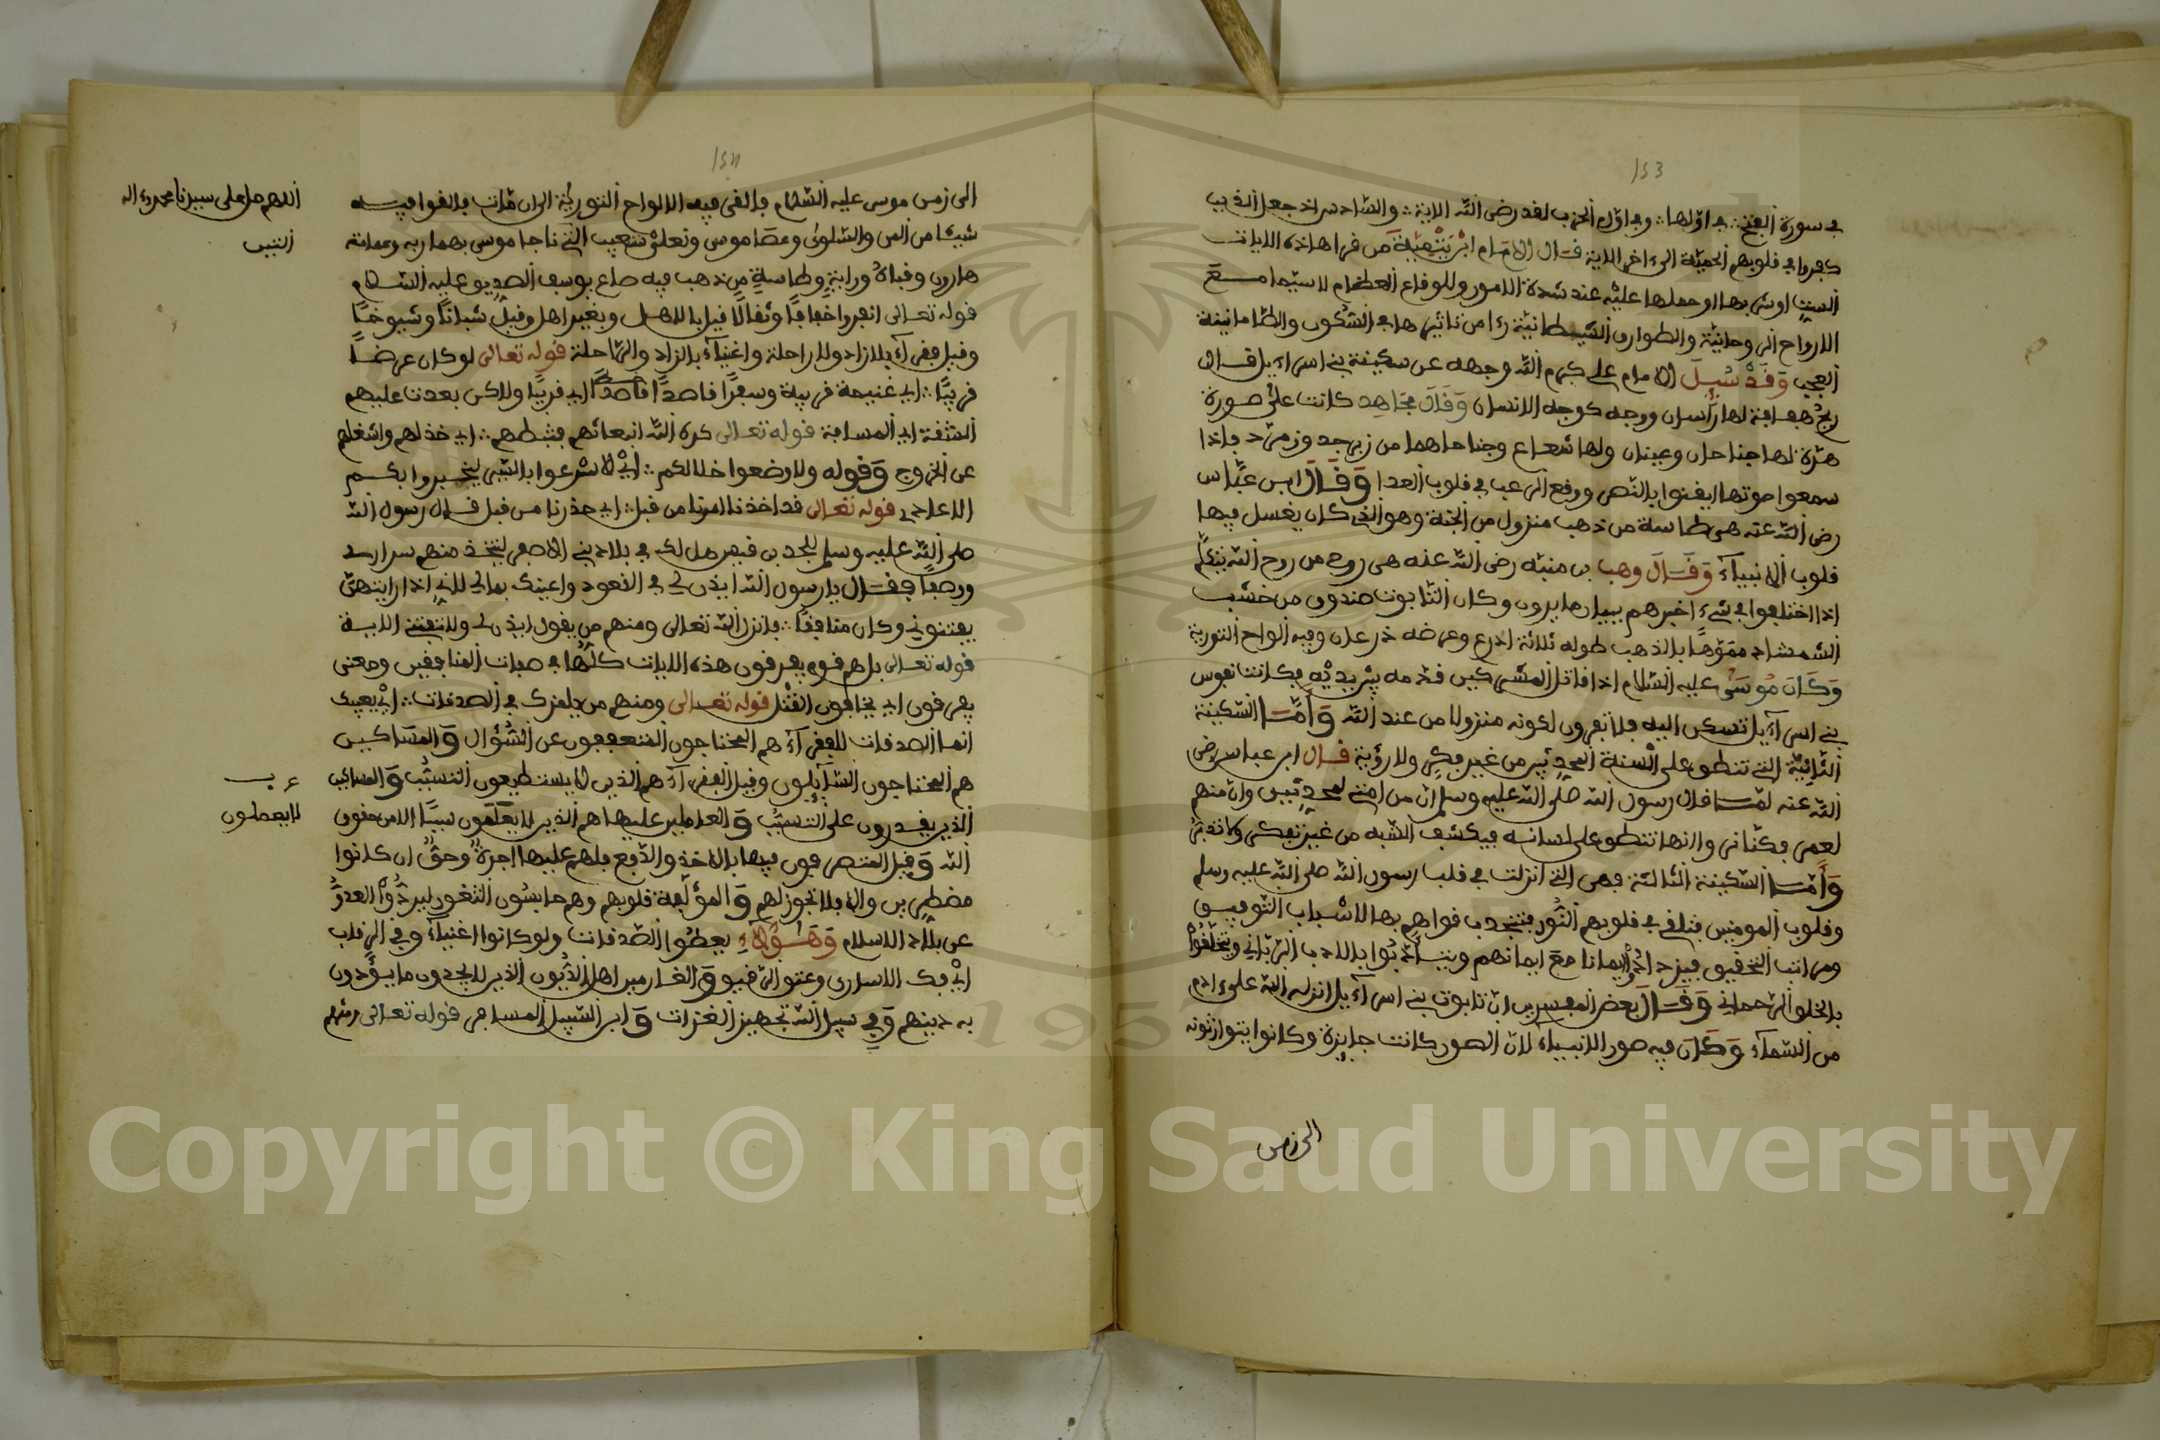 153
في سورة الفتح ∴ في اولها ∴ وفي اول الحزب لقد رضي الله الاية ∴ والسادس اذ جعل الذين
كفروا في قلوبهم الحمية الى اخر الاية قال الامام ابن تيمية من قرا هاذه الايات
الست او شربها او حملها عليه عند شدة الامور والوقائع العظام لا سيما مع
الارواح الروحانية والطوارق الشيطانية راى من تاثيرها في السكون والطمانينة
العجب وقد سيل الامام علي كرم الله وجهه عن سكينة بني اسراءيل قال
ريح هفافة لها راسان ووجه كوجه الانسان وقال مجاهد كانت على صورة
هرة لها جناحان وعينان ولها شعاع وجناحاهما من زبرجد وزمرد فاذا
سمعوا صوتها ايقنوا بالنصر ووقع الرعب في قلوب العدا وقال ابن عباس
رضي الله عنه هي طاسة من ذهب منزول من الجنة وهو الذي كان يغسل فيها
قلوب الانبياء وقال وهب بن منبه رضي الله عنه هي روح من روح الله يتكلم
اذا اختلفوا في شيء اخبرهم ببيان ما يريدون وكان التابوت صندوق من خشب
الشمشاد مموها بالذهب طوله ثلاثة اذرع وعرضه ذرعان وفيه الواح التورية
وكان موسى عليه السلام اذا قاتل المشركين قدمه بين يديه فكانت نفوس
بني اسراءيل تسكن اليه فلا تفرون لكونه منزولا من عند الله واما السكينة
الثانية التي تنطق على السنة المحدثين من غير فكر ولا روية قال ابن عباس رضي
الله عنه لما قال رسول الله صلى الله عليه وسلم ان من امتي لمحدثين وان منهم
لعمر فكنا نرى وانها تنطق على لسانه فيكشف الشبه من غير تفكر ولا تدبر
واما السكينة الثالثة فهي التي انزلت في قلب رسول الله صلى الله عليه وسلم
وقلوب المومنين فتلقي في قلوبهم النور فتنجدب قواهم بها لاسباب التوفيق
ومراتب التحقيق فيزدادوا ايمانا مع ايمانهم ويتادبوا بالادب الرباني ويتخلقوا
بالخلق الرحماني وقال بعض المفسرين ان تابوت بني اسراءيل انزله الله على ءادم
من السماء وكان فيه صور الانبياء لان الصور كانت جايزة وكانوا يتوارثونه
الى زمن
154
الى زمن موسى عليه السلام فالقى فيه الالواح التورية الى ان مات فالقوا فيه
شيئا من المن والسلوى وعصا موسى ونعلى شعيب التي ناجا موسى بهما ربه وعمامة
هارون وقباه وراية وطاسة من ذهب فيه صاع يوسف الصديق عليه السلام
قوله تعالى انفروا خفافا وثقالا قيل بالاهل وبغير اهل وقيل شبانا وشيوخا
وقيل فقراء بلا زاد ولا راحلة واغنياء بالزاد والراحلة قوله تعالى لو كان عرضا
قريبا ∴ اي غنيمة قريبة وسفرا قاصدا قاصدا اي قريبا ولاكن بعدت عليهم
الشقة اي المسافة قوله تعالى كره الله انبعاثهم فثبطهم ∴ اي خذلهم واشغلهم
عن الخروج وقوله ولاوضعوا خلالكم ∴ اي لاسرعوا بالسير ليخبروا بكم
الاعادي قوله تعالى قد اخذنا امرنا من قبل ∴ اي حذرنا من قبل قال رسول الله
صلى الله عليه وسلم للجد بن قيس هل لك في بلاد بني الاصفر لتتخذ منهم سراري
ووصفا فقال يا رسول الله ايذن لي في القعود واعينك بمالي لاني اذا رايتهن
يفتنوني وكان منافقا ∴ فانزل الله تعالى ومنهم من يقول ايذن لي ولا تفتني الاية
قوله تعالى بل هم قوم يفرقون هذه الايات كلها في صفات المنافقين ومعنى
يفرقون اي يخافون القتل قوله تعالى ومنهم من يلمزك في الصدقات ∴ اي يعيبك
انما الصدقات للفقراء هم المحتاجون المتعففون عن السؤال والمساكين
هم المحتاجون السايلون وقيل الفقراء هم الذين لا يستطيعون التسبب والمساكين
الذين يقدرون على التسبب والعاملين عليها هم الذين لا يعلمون سببا الا من حقوق
الله وقيل المتصرفون فيها بالاخذ والدفع فلهم عليها اجرة وحق ان كانوا
مضطرين والا فلا تجوز لهم والمؤلفة قلوبهم وهم حابسون الثغور ليردوا العدو
عن بلاد الاسلام وهؤلاء يعطوا الصدقات ولو كانوا اغنياء وفي الرقاب
اي فك الاسارى وعتق الرقيق والغارمين اهل الديون الذين لا يجدون ما يؤدون
به دينهم وفي سبيل الله تجهيز الغزات وابن السبيل المسافر قوله تعالى ومنهم
اللهم صل على سيدنا محمد وءاله
لا يعملون
Copyright © King Saud University
1957